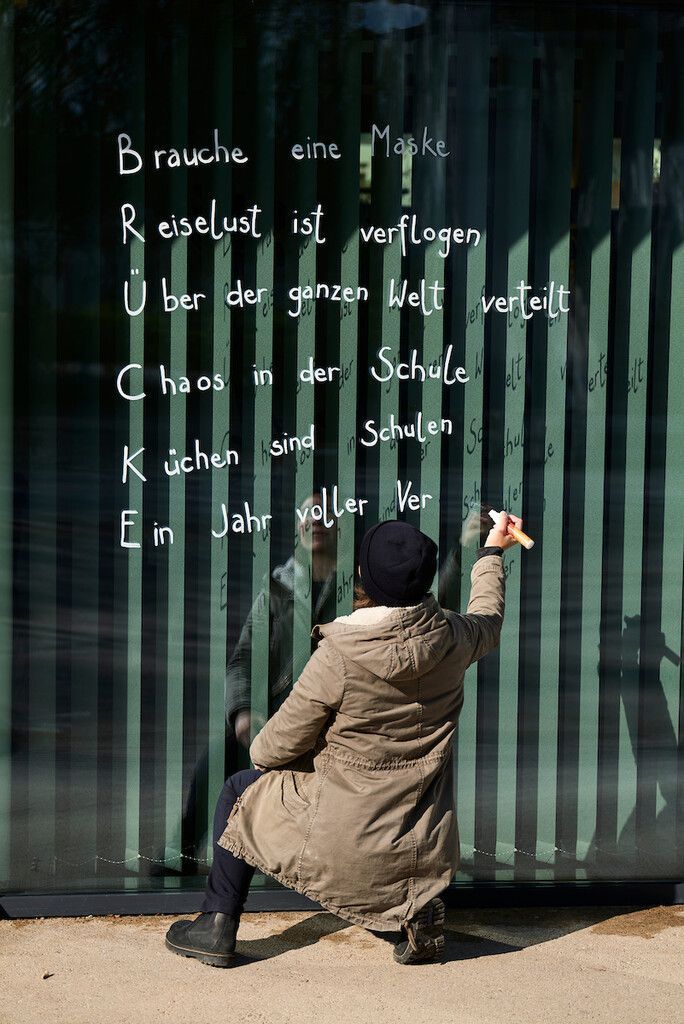 Brauche eine Maske
Reiselust ist verflogen
Über der ganzen Welt verteilt
Chaos in der Schule
Küchen sind Schulen
Ein Jahr voller Ver